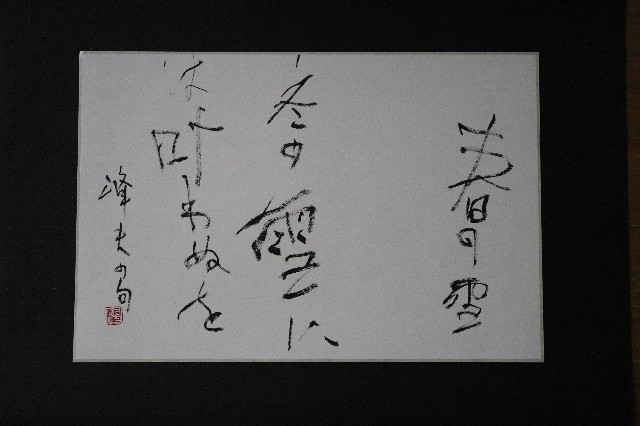 春の雪
冬の雪に
は叶わぬを
峰夫の句